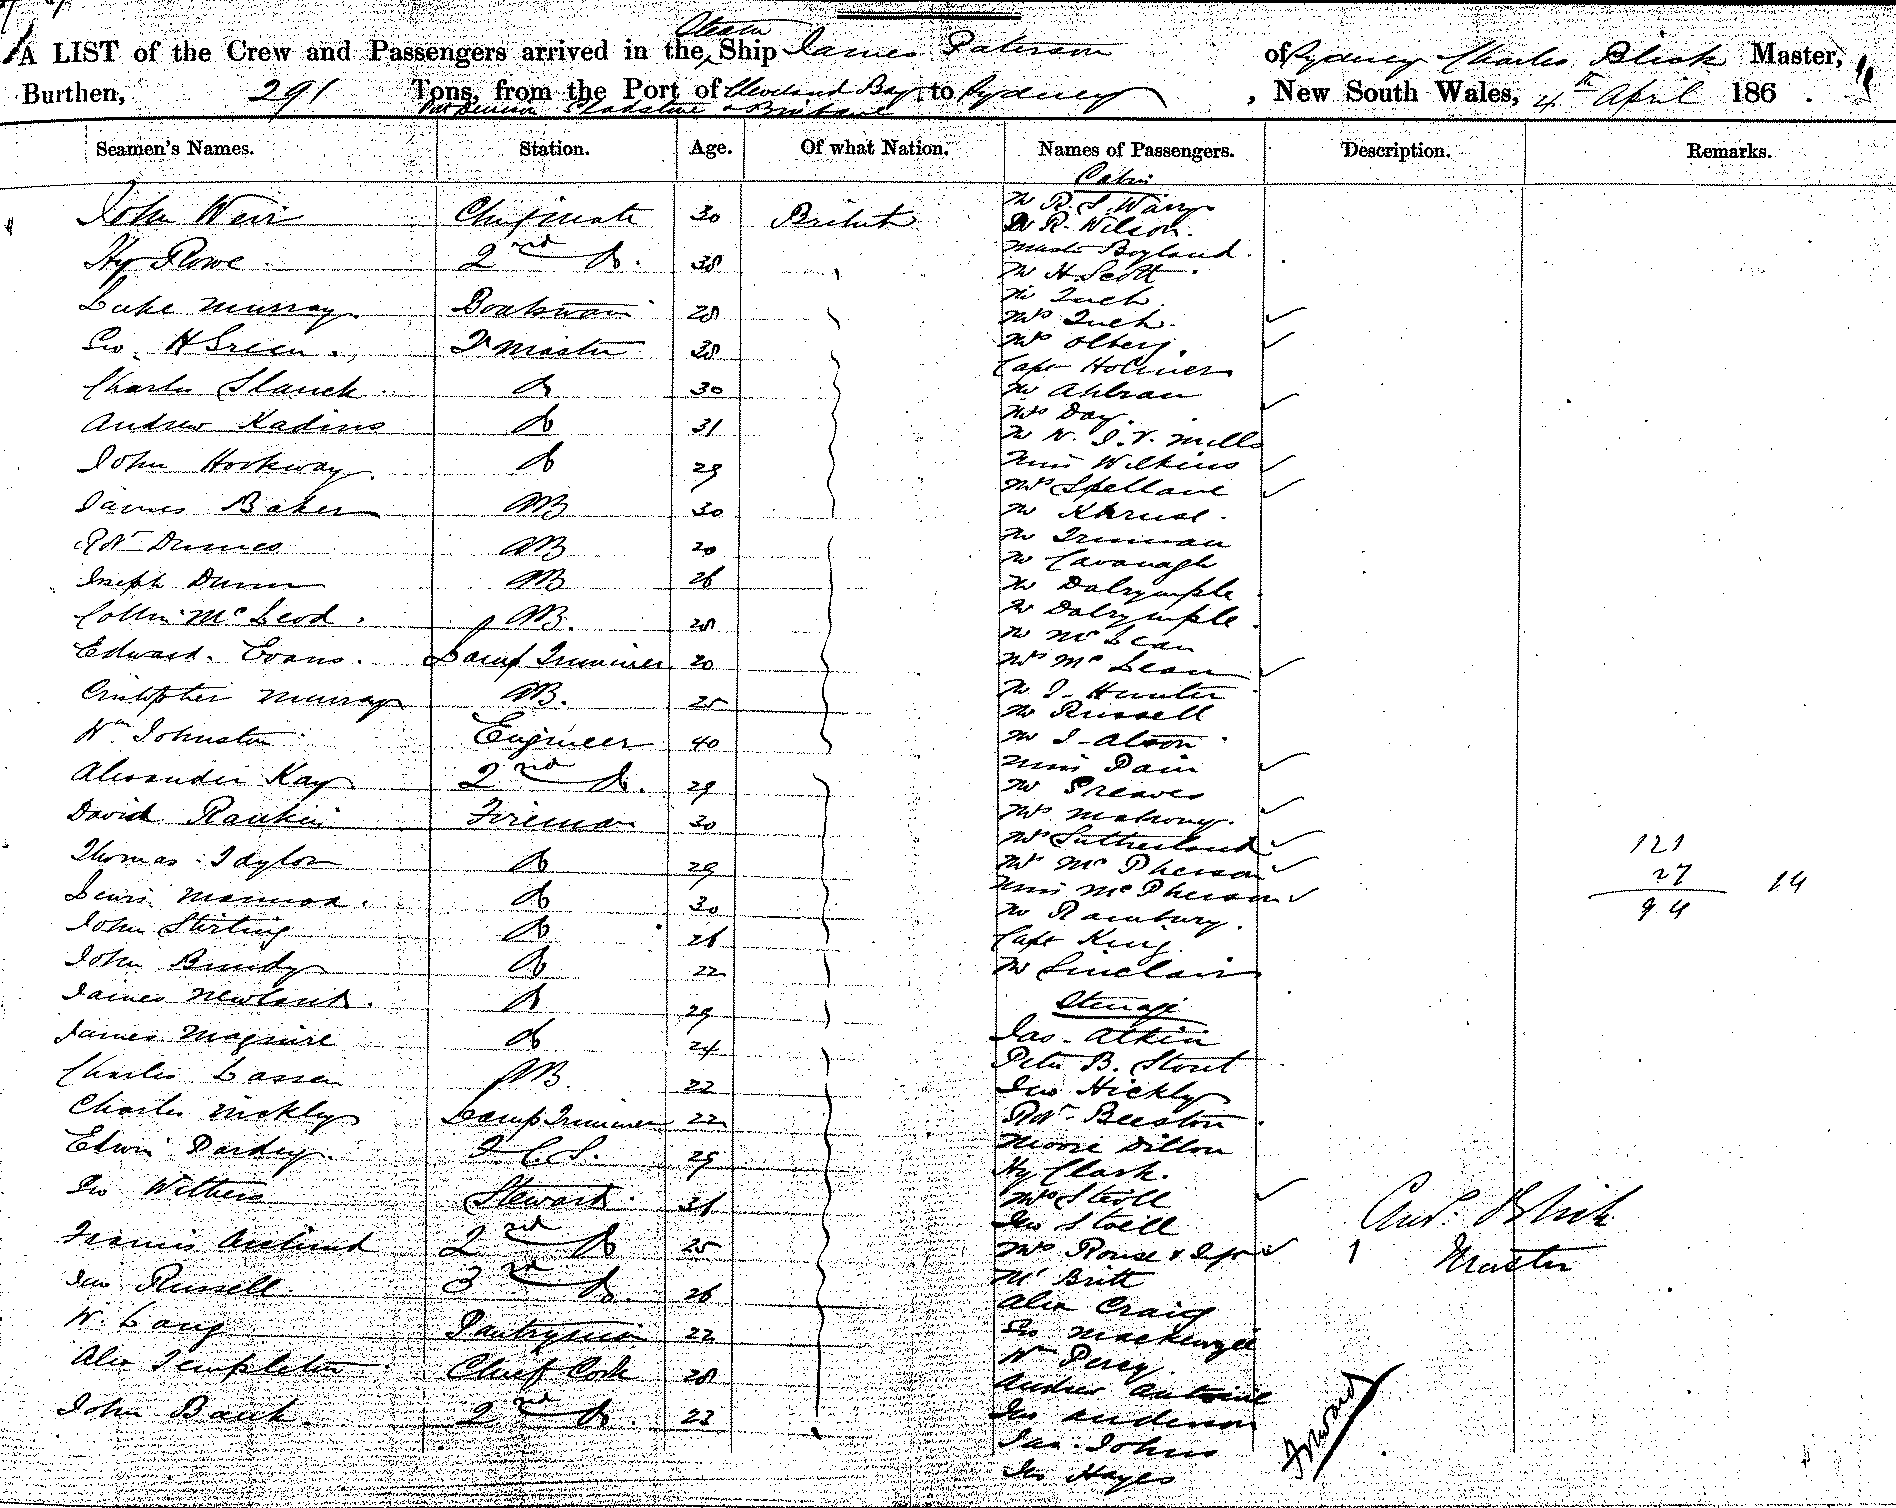 A LIST of the Crew and Passengers arrived in the Steam Ship James Paterson of Sydney Charles Blick Master,
Burthen, 291 Tons, from the Port of Cleveland Bay to Sydney, New South Wales, 4th April 186 .
Gladstone & Brisbane
Seamen's Names. Station. Age. Of what Nation. Names of Passengers. Description. Remarks.
John Weir Chief mate 30 British
Hy Rowe 2nd Do. 38
Luke Murray Boatswain 28
Geo. H Green Qr Master 38
Charles Do 30
Andrew Do 31
John Hockway Do 29
James Baker AB 30
Robt AB 20
Joseph Dunn AB 26
Collin McLeod AB. 28
Edward Evans Lamp Trimmer 20
Cristopher Murray AB. 25
Wm Johnston Engineer 40
Alexander Kay 2nd Do. 29
David Rankin Fireman 30
Thomas Taylor Do 29
Lewis Do 30
John Stirling Do 26
John Brindy Do 22
James Newland Do 29
James Maguire Do 24
Charles Lassen AB. 22
Charles Lamp Trimmer 22
Edwin 29
Jno Withers Steward
Francis 2nd Do 25
Jno Russell 3rd Do. 26
W. Lang Pantryman 22
Alex Templeton Chief Cook 28
John Bank 2nd Do. 23
Cabin
Mr R. S. Warry
Dr R. Wilson.
Master Boyland.
Mr H. Scott
Mr
Mrs
Mrs Olberg.
Capt Holmes
Mr
Mrs Day
Mr W. J. V. Mills
Miss Wilkins
Mrs Spellane
Mr Khruse.
Mr Truman
Mr Cavanagh
Mr Dalrymple
Mr Dalrymple
Mr McLean
Mrs McLean
Mr J. Hunter
Mr Russell
Mr J. Alson
Miss Pain
Mr Greaves
Mrs Mahony.
Mrs Sutherland
Mrs McPherson
Miss McPherson
Mr
Capt King.
Mr Sinclair
Steerage
Jas. Atkin
Peter B. Stout
Jno Hickly
Robt Beeston
Moore Dillon
Hy Clark.
Mrs
Jno
Mrs Rouse & Infr
Mr Britt
Alex Craig
Jno Mackenzie
Wm Percy
Andrew Antoine
Jno Anderson
Jas. Johns
Jno Hayes
121
27 14
94
Chas. Blick
Master